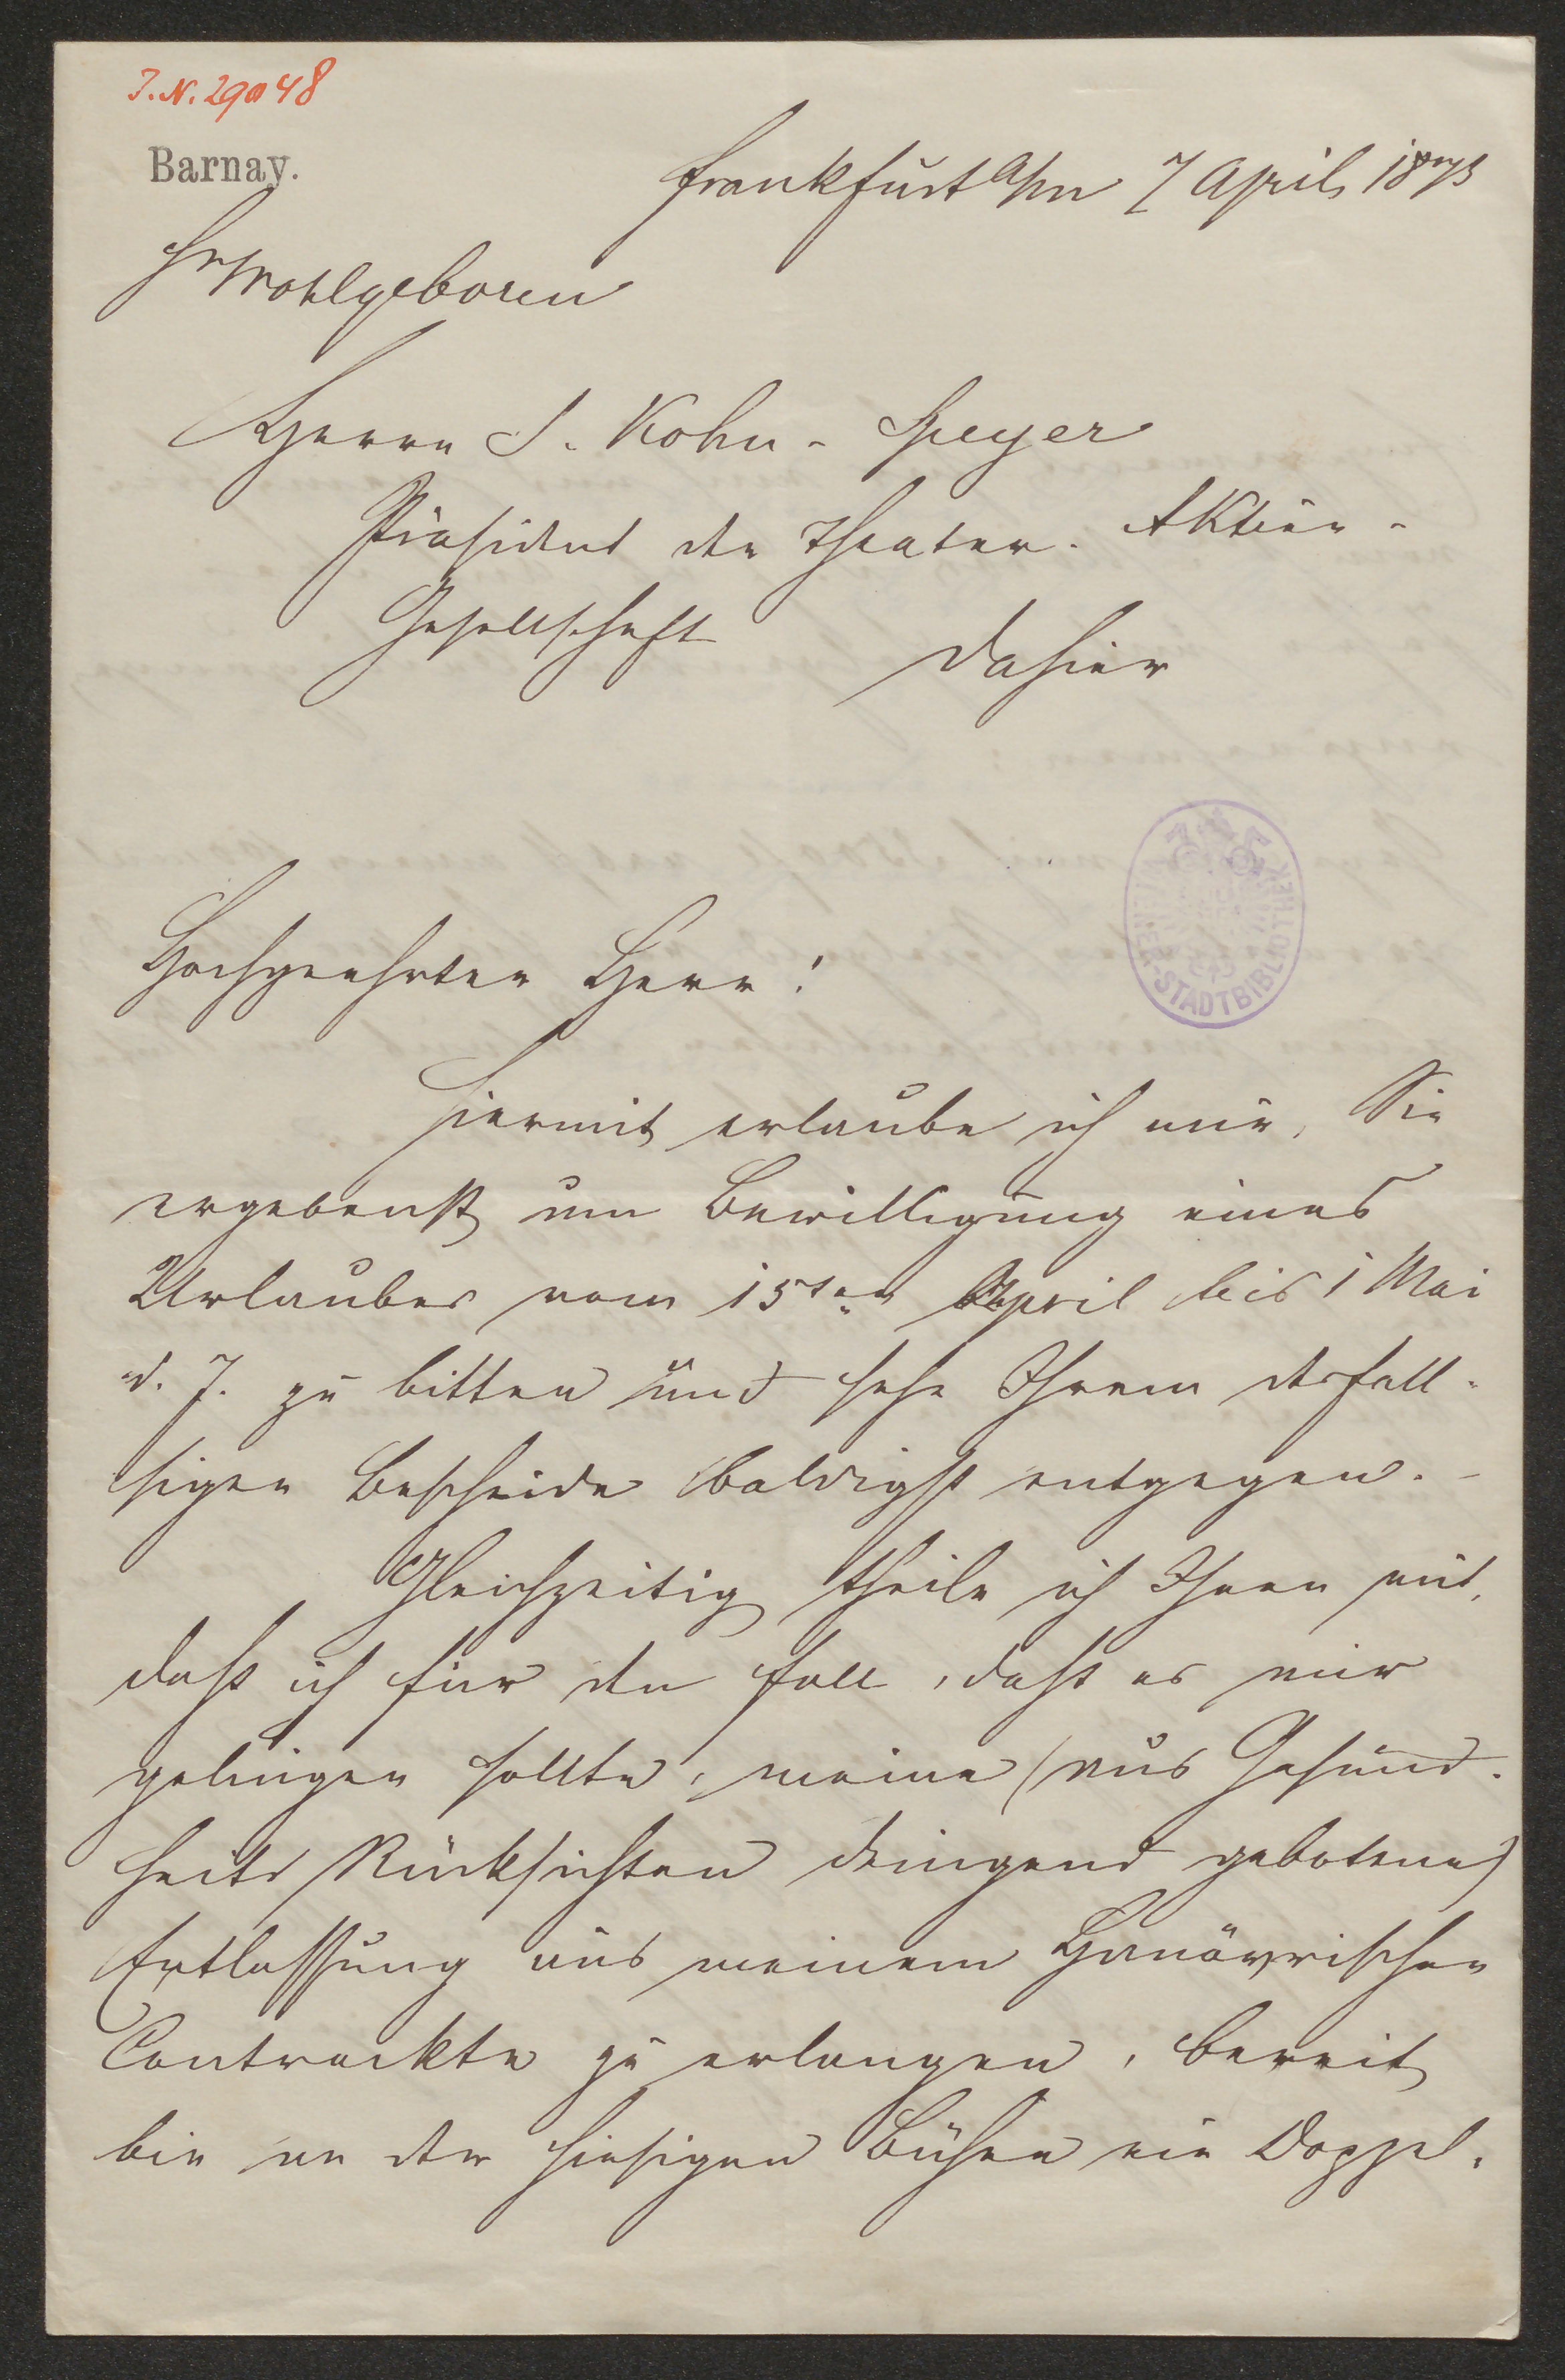 J.N. 29048
Barnay.
Frankfurt a/m 7 April 1873
Sr Wohlgeboren
Herrn S. Kohn-Speyer
Präsident der Theater-Aktien-
Gesellschaft
dahier
WIENER-STADTBIBLIOTHEK
Hochgeehrter Herr!
Hiermit erlaube ich mir, Sie
ergebenst um Bewilligung eines
Urlaubes vom 15ten April bis 1 Mai
d. J. zu bitten und sehe Ihrem desfall-
sigen Bescheide baldigst entgegen. -
Gleichzeitig theile ich Ihnen mit,
daß ich für den Fall, daß es mir
gelingen sollte, meine (aus Gesund-
heits Rücksichten dringend gebotene)
Entlassung aus meinem Hanövrischen
Contrackte zu erlangen, bereit
bin an der hiesigen Bühne ein Doppel-